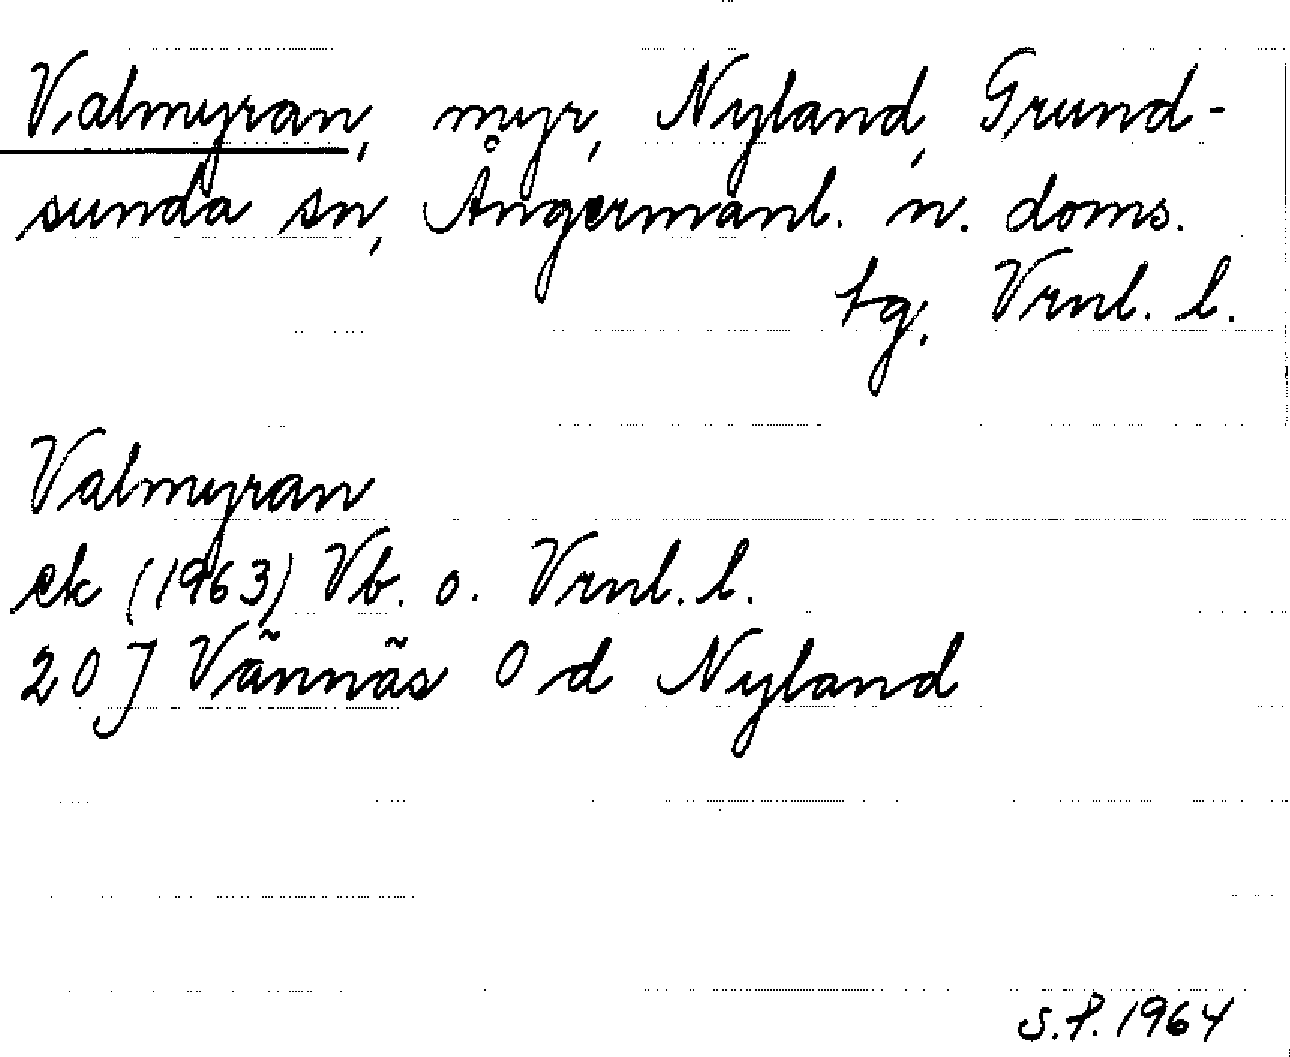 Valmyran, myr, Nyland, Grund-
sunda sn, Ångermanl. n. doms.
tg, Vrnl. l.
Valmyran
ek (1963) Vb. o. Vrnl. l.
20 J Vännäs 0 d Nyland
S.P. 1964